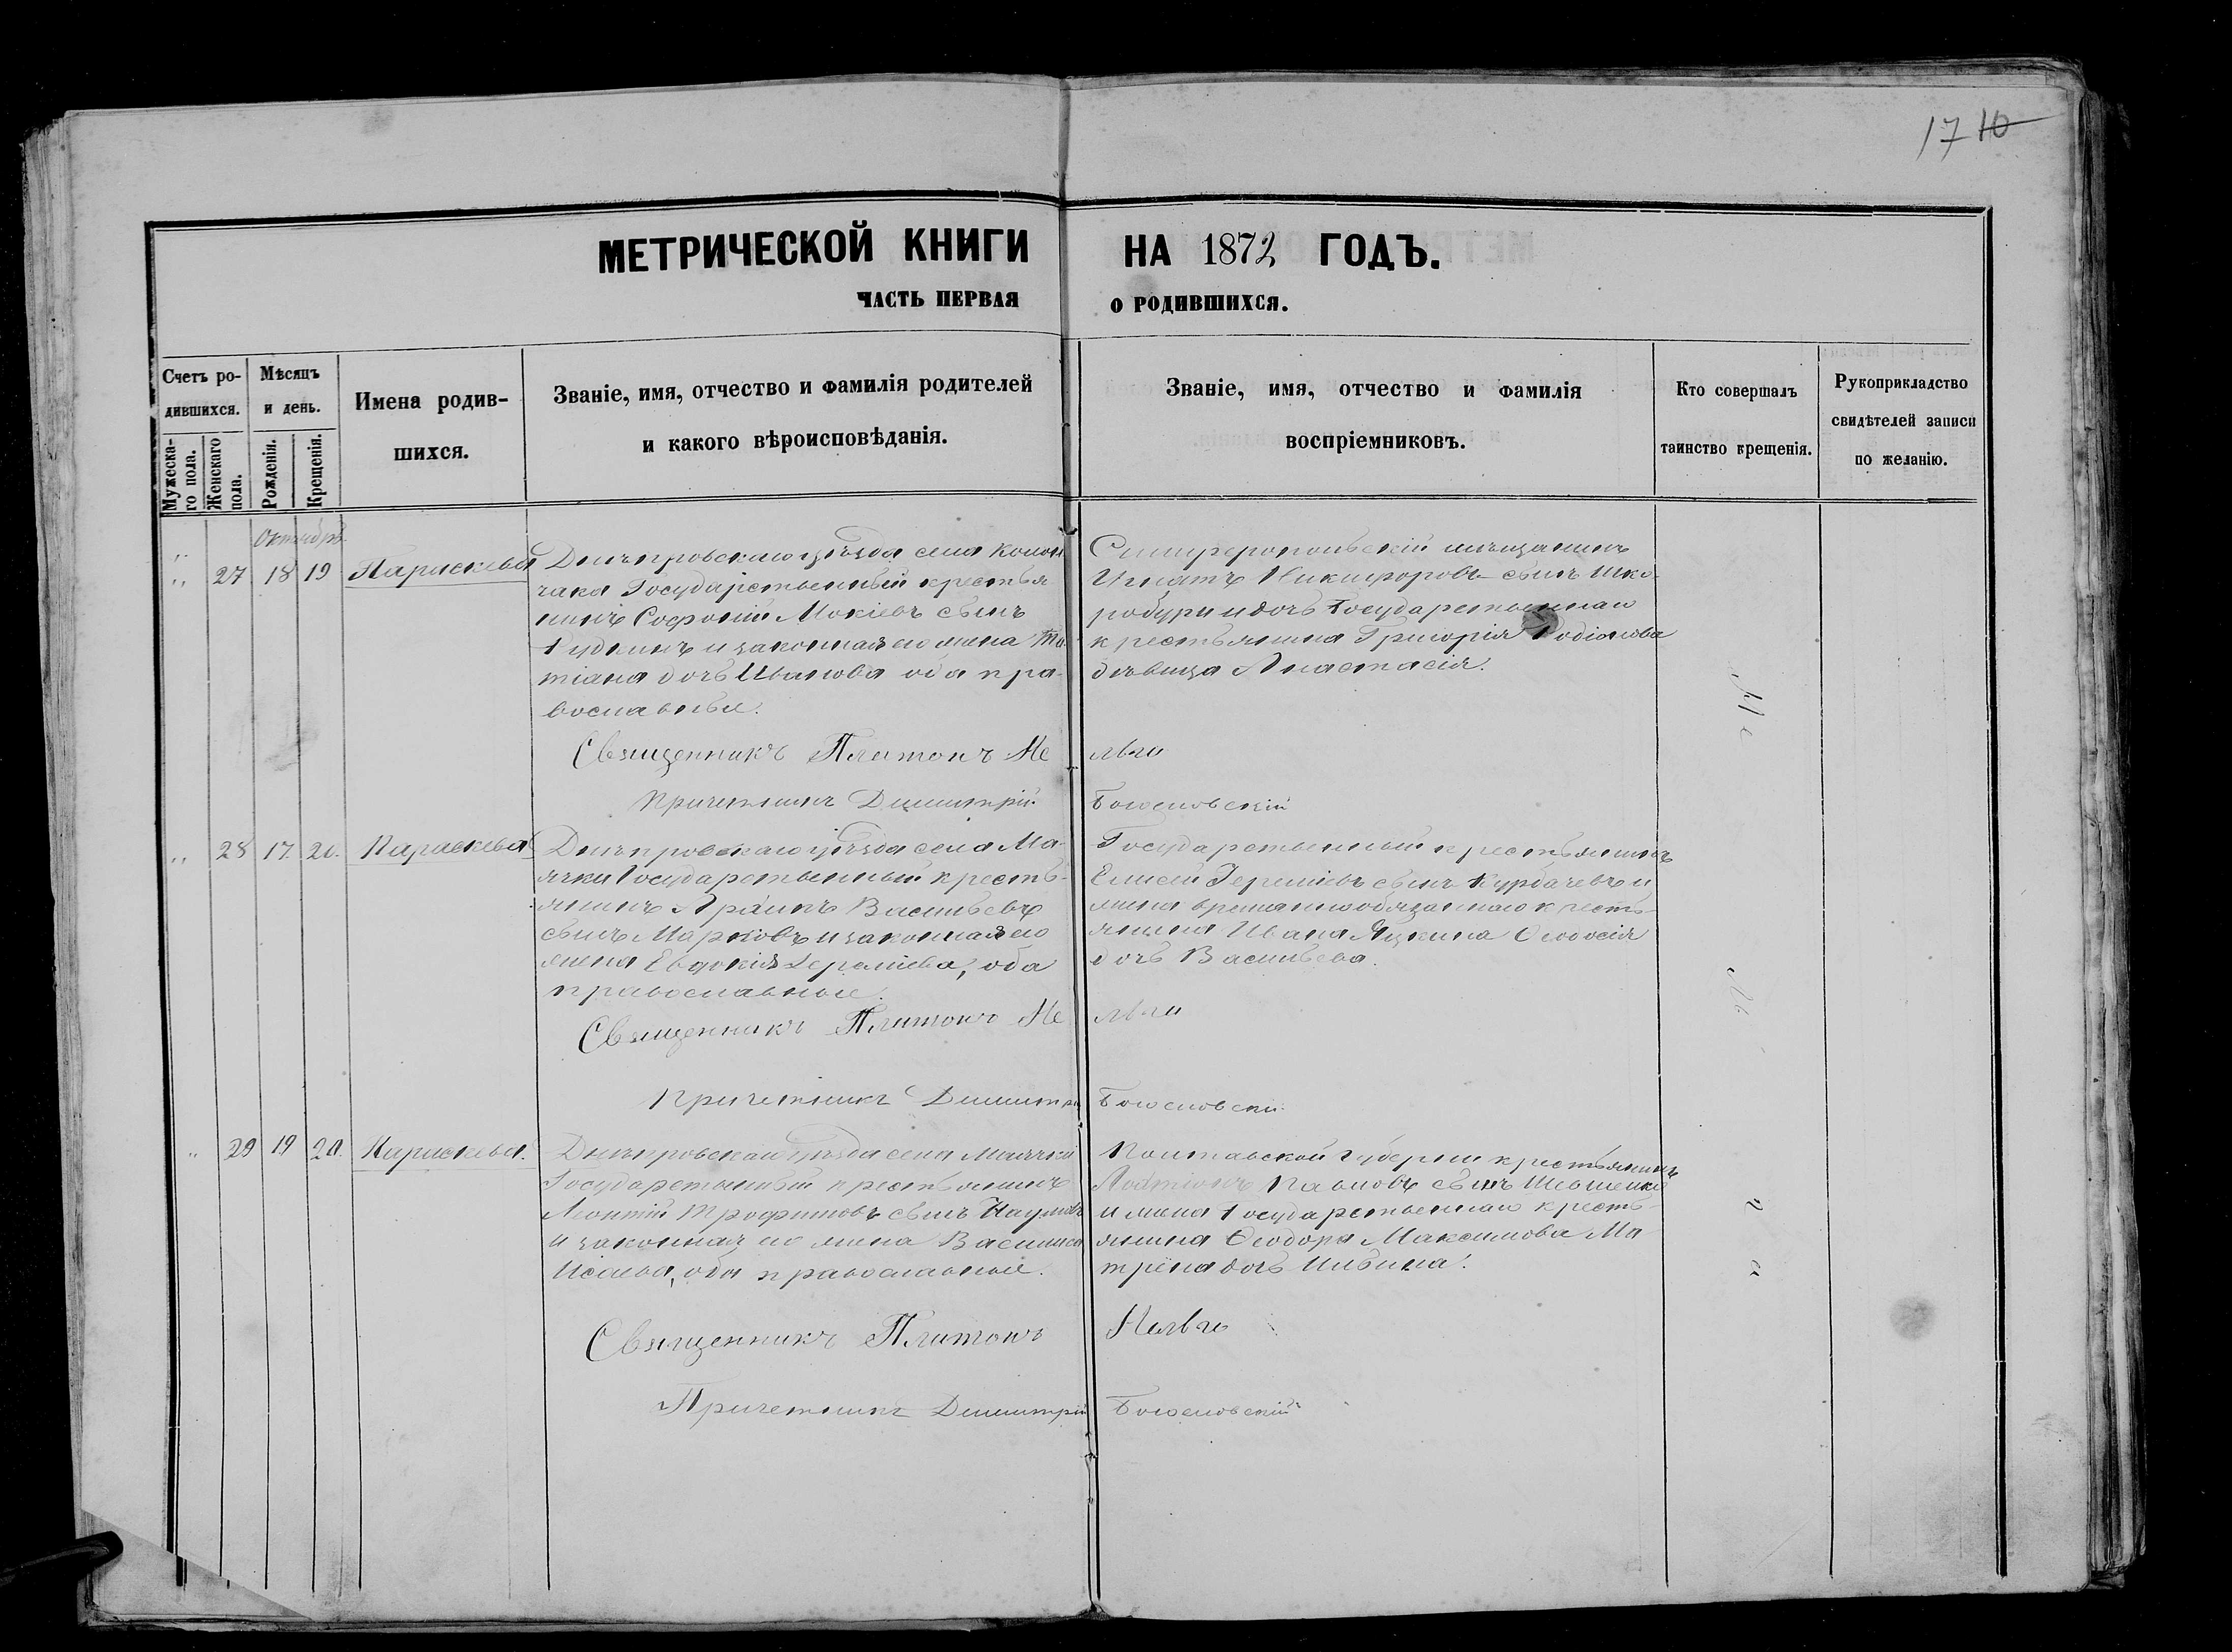 17 10
МЕТРИЧЕСКОЙ КНИГИ НА 1872 ГОДЪ.
ЧАСТЬ ПЕРВАЯ О РОДИВШИХСЯ.
Счетъ ро-
дившихся.
Мужеска-
го пола.
Женскаго
пола.
Мѣсяцъ
и день.
Рожденія.
Крещенія.
Имена родив-
шихся.
Званіе, имя, отчество и фамилія родителей
и какого вѣроисповѣданія.
Званіе, имя, отчество и фамилія
воспріемниковъ.
Кто совершалъ
таинство крещенія.
Рукоприкладство
свидѣтелей записи
по желанію.
Октябрь
27 18 19 Параскева
Днѣпровскаго уѣзда села Колон
чака Государственный крестья
нинъ Софоній Мокіевъ сынъ
и законная его жена Та
тіана дочь Иванова оба пра-
вославные.
Симферопольскій мѣщанинъ
Игнатъ Никифоровъ сынъ Шко-
робури и дочь Государственнаго
крестьянина Григорія Родіонова
дѣвица Анастасія.
Священникъ Платонъ Ме
Причетникъ Димитрій Богословскій
28 17 20. Параскева
Днѣпровскаго уѣзда села Ма-
ячки Государственный кресть-
янинъ Васильевъ
сынъ Марковъ и законная его
жена Евдокія Іереміева, оба
православные.
Государственный крестьянинъ
Елисей Іереміевъ сынъ Курдачевъ и
жена временнообязаннаго кресть-
янина Ивана Яцкина Ѳеодосія
дочь Васильева.
Священникъ Платонъ Ме
Причетникъ Димитрій Богословскій
29 19 20. Параскева.
Днѣпровскаго уѣзда села Маячки
Государственный крестьянинъ
Леонтій Трофимовъ сынъ Наумовъ
и законная его жена Василиса
Исаева, оба православные.
Полтавской губерніи крестьянинъ
Павловъ сынъ Шевченко
и жена Государственнаго кресть-
янина Ѳеодора Максимова Ма
трена дочь
Священникъ Платонъ
Причетникъ Димитрій Богословскій